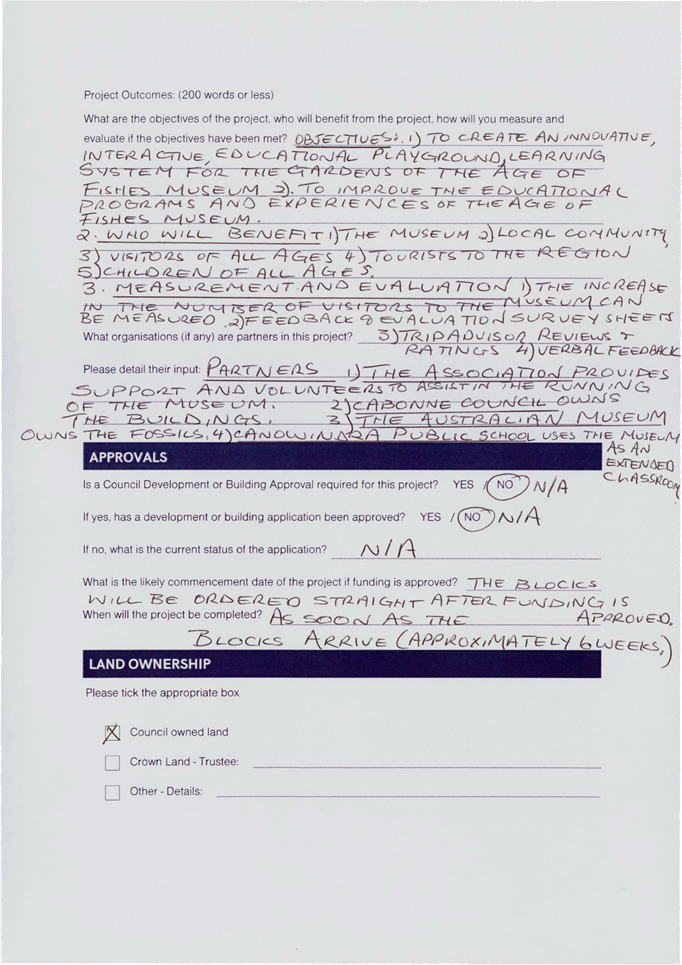 Project Outcomes: (200 words or less)
What are the objectives of the project, who will benefit from the project, how will you measure and
evaluate if the objectives have been met? OBJECTIVES: 1) TO CREATE AN INNOVATIVE,
INTERACTIVE, EDUCATIONAL PLAYGROUND, LEARNING
SYSTEM FOR THE GARDENS OF THE AGE OF
FISHES MUSEUM 2). TO IMPROVE THE EDUCATIONAL
PROGRAMS AND EXPERIENCES OF THE AGE OF
FISHES MUSEUM.
2. WHO WILL BENEFIT 1) THE MUSEUM 2) LOCAL COMMUNITY
3) VISITORS OF ALL AGES 4) TOURISTS TO THE REGION
5) CHILDREN OF ALL AGES.
3. MEASUREMENT AND EVALUATION 1) THE INCREASE
IN THE NUMBER OF VISITORS TO THE MUSEUM CAN
BE MEASURED. 2) FEEDBACK & EVALUATION SURVEY SHEETS
What organisations (if any) are partners in this project? 3) TRIPADVISOR REVIEWS &
RATINGS 4) VERBAL FEEDBACK
Please detail their input: PARTNERS 1) THE ASSOCIATION PROVIDES
SUPPORT AND VOLUNTEERS TO ASSIST IN THE RUNNING
OF THE MUSEUM. 2) CABONNE COUNCIL OWNS
THE BUILDINGS. 3) THE AUSTRALIAN MUSEUM
OWNS THE FOSSILS. 4) CANOWINDRA PUBLIC SCHOOL USES THE MUSEUM
AS AN
EXTENDED
CLASSROOM
APPROVALS
Is a Council Development or Building Approval required for this project? YES / NO N/A
If yes, has a development or building application been approved? YES / NO N/A
If no, what is the current status of the application? N/A
What is the likely commencement date of the project if funding is approved? THE BLOCKS
WILL BE ORDERED STRAIGHT AFTER FUNDING IS
APPROVED.
When will the project be completed? AS SOON AS THE
BLOCKS ARRIVE (APPROXIMATELY 6 WEEKS.)
LAND OWNERSHIP
Please tick the appropriate box
X Council owned land
Crown Land - Trustee:
Other - Details: